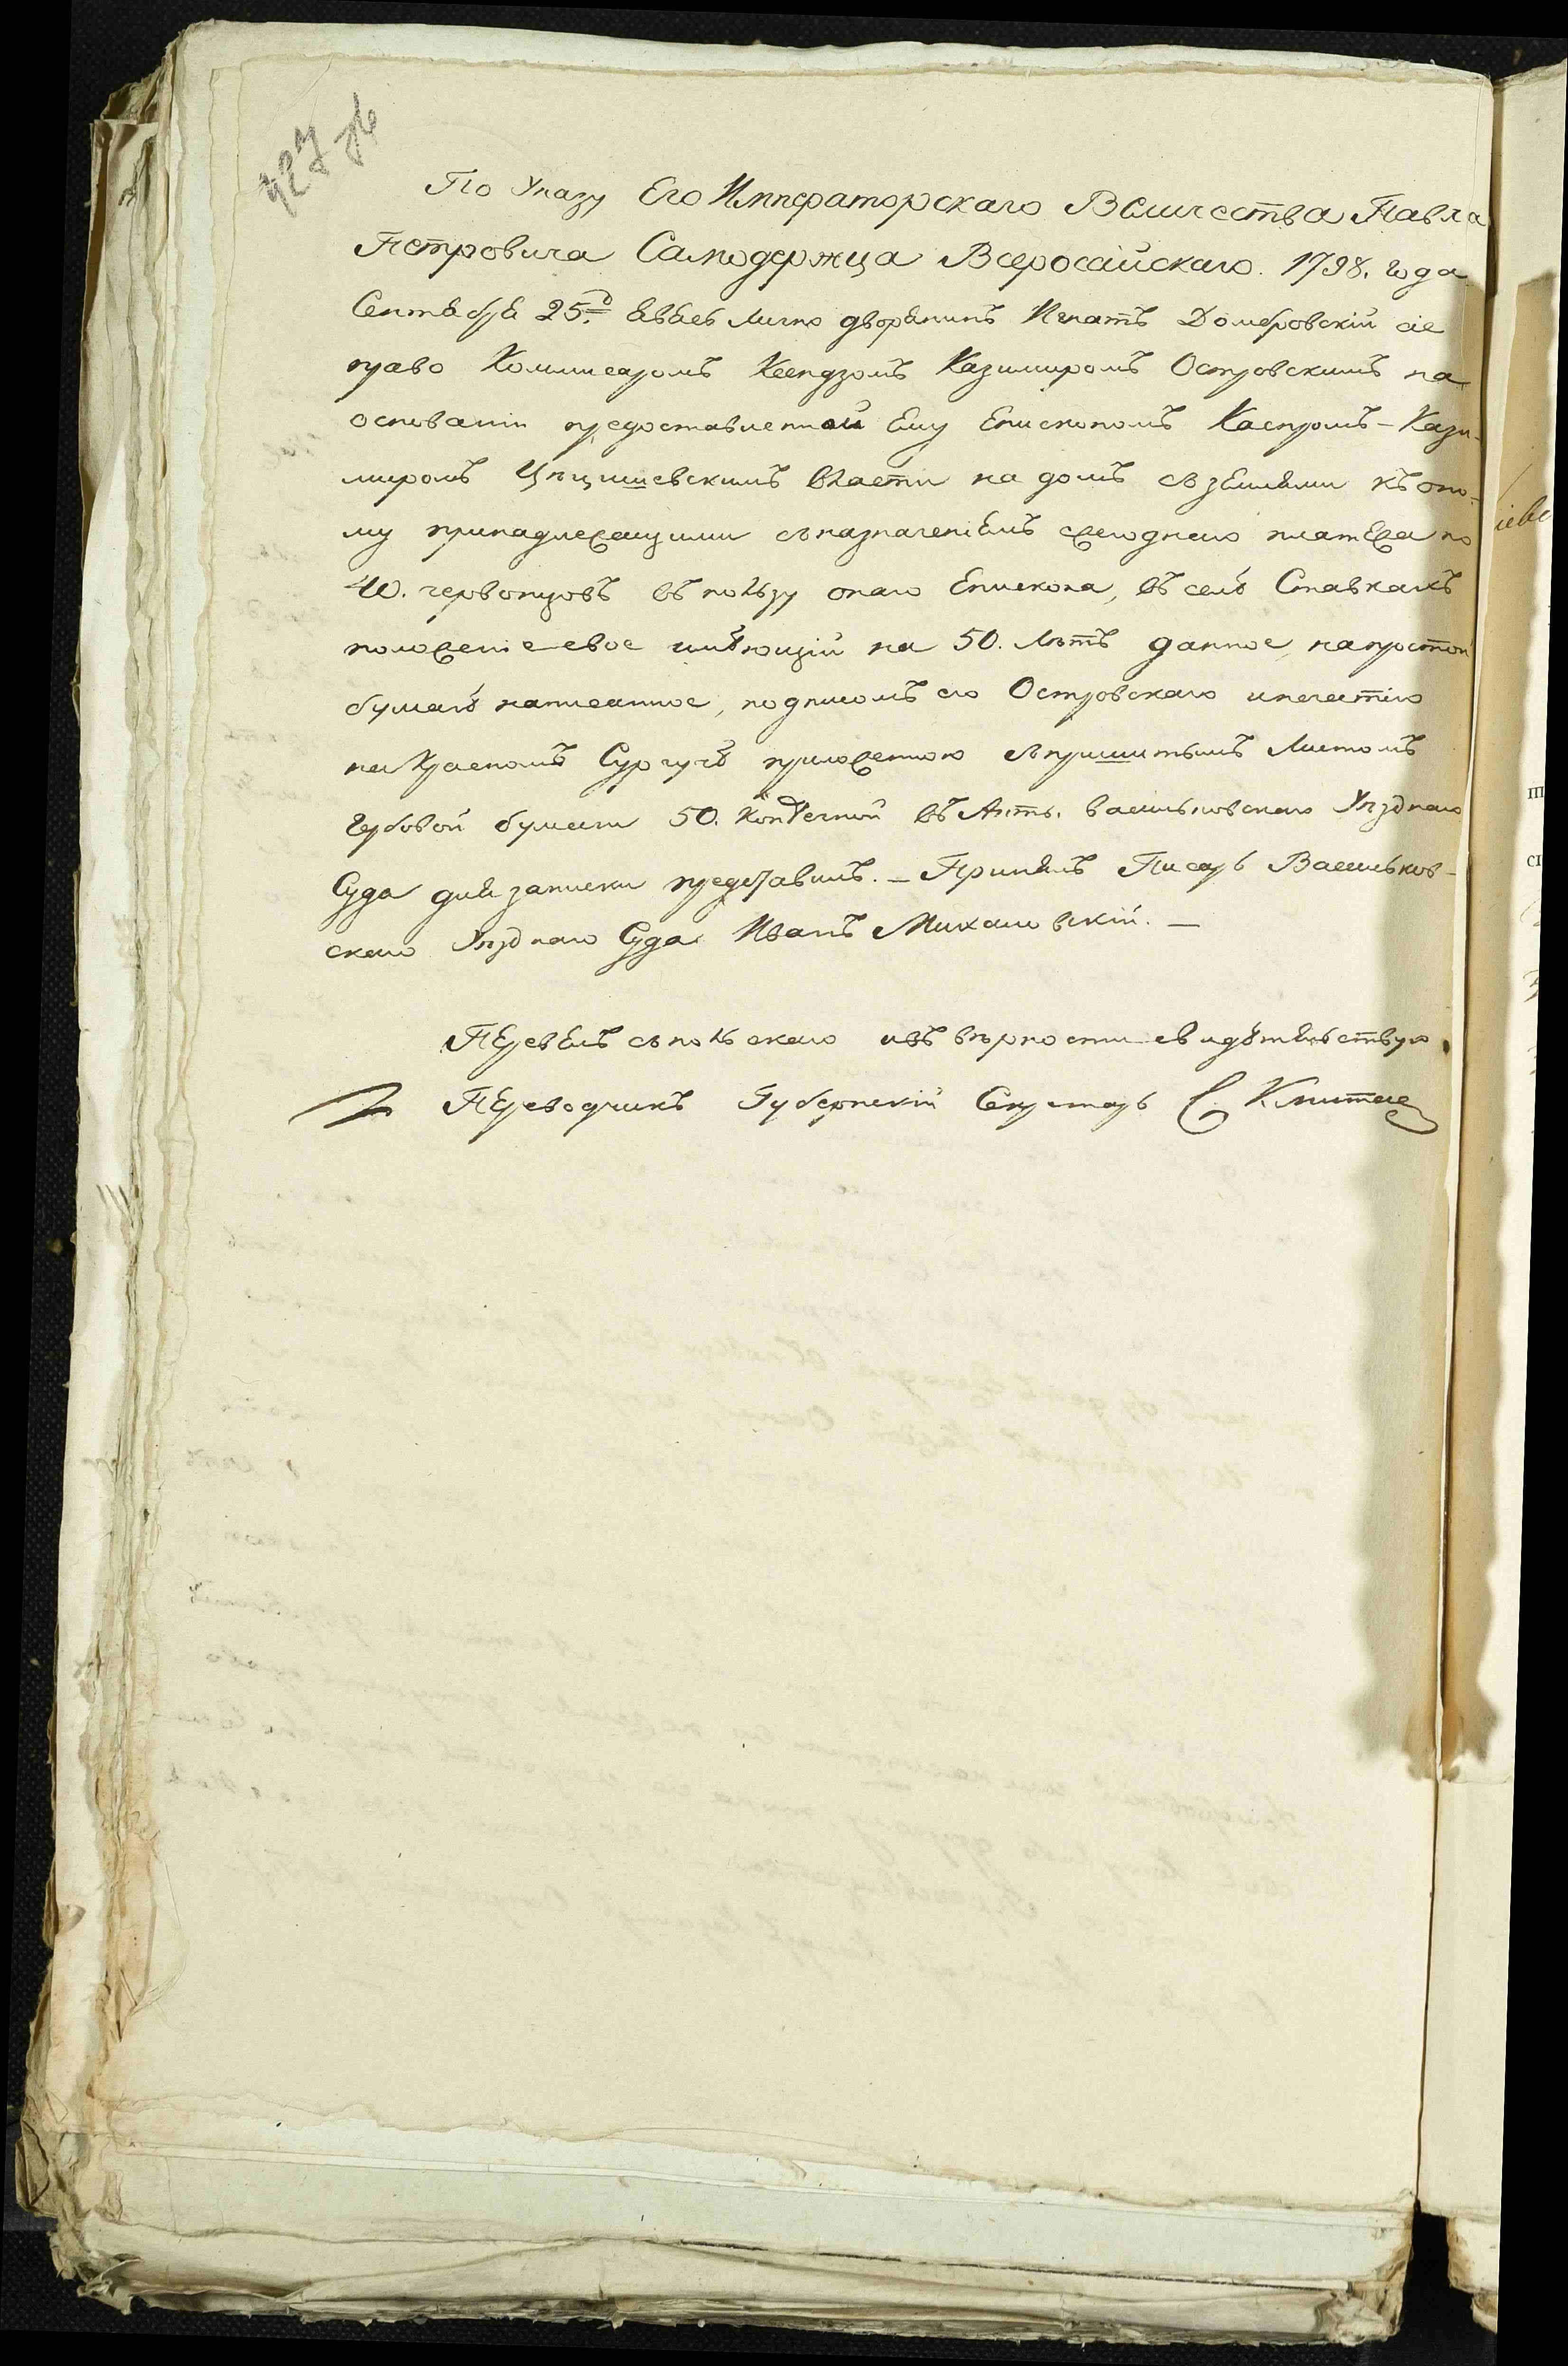 427
По Указу Его Императорскаго Величества Павла
Петровича Самодержца Всеросайискаго. 1798. года
Сентебря 25.д явясь лично дворянинъ Игнатъ Домбровскій сіе
право Коммисаромъ Ксендзомъ Казимиромъ Островскимъ на
основаніи предоставленной Ему Епископомъ Каспромъ - Кази-
миромъ Цѣцишевскимъ власти на домъ съ землями къ оно-
му принадлежащими съ назначеніемъ ежегоднаго платежа по
40. червонцовъ въ пользу онаго Епископа, въ селѣ Ставкахъ
положеніе свое имѣющій на 50. лѣтъ данное, на простой
бумагѣ написанное, подписомъ его Островскаго и печатію
на Красномъ Сургучѣ приложенною съ пришитымъ Листомъ
Гербовой бумаги 50. Копѣечной въ Актъ. Васильковскаго Уѣзднаго
Суда для записки представилъ. - Принялъ Писарь Васильков-
скаго Уѣзднаго Суда Иванъ Михаловскій. -
Перевелъ съ польскаго и въ вѣрности свидѣтельствую
Переводчикъ Губернскій Секретарь С. Кмита